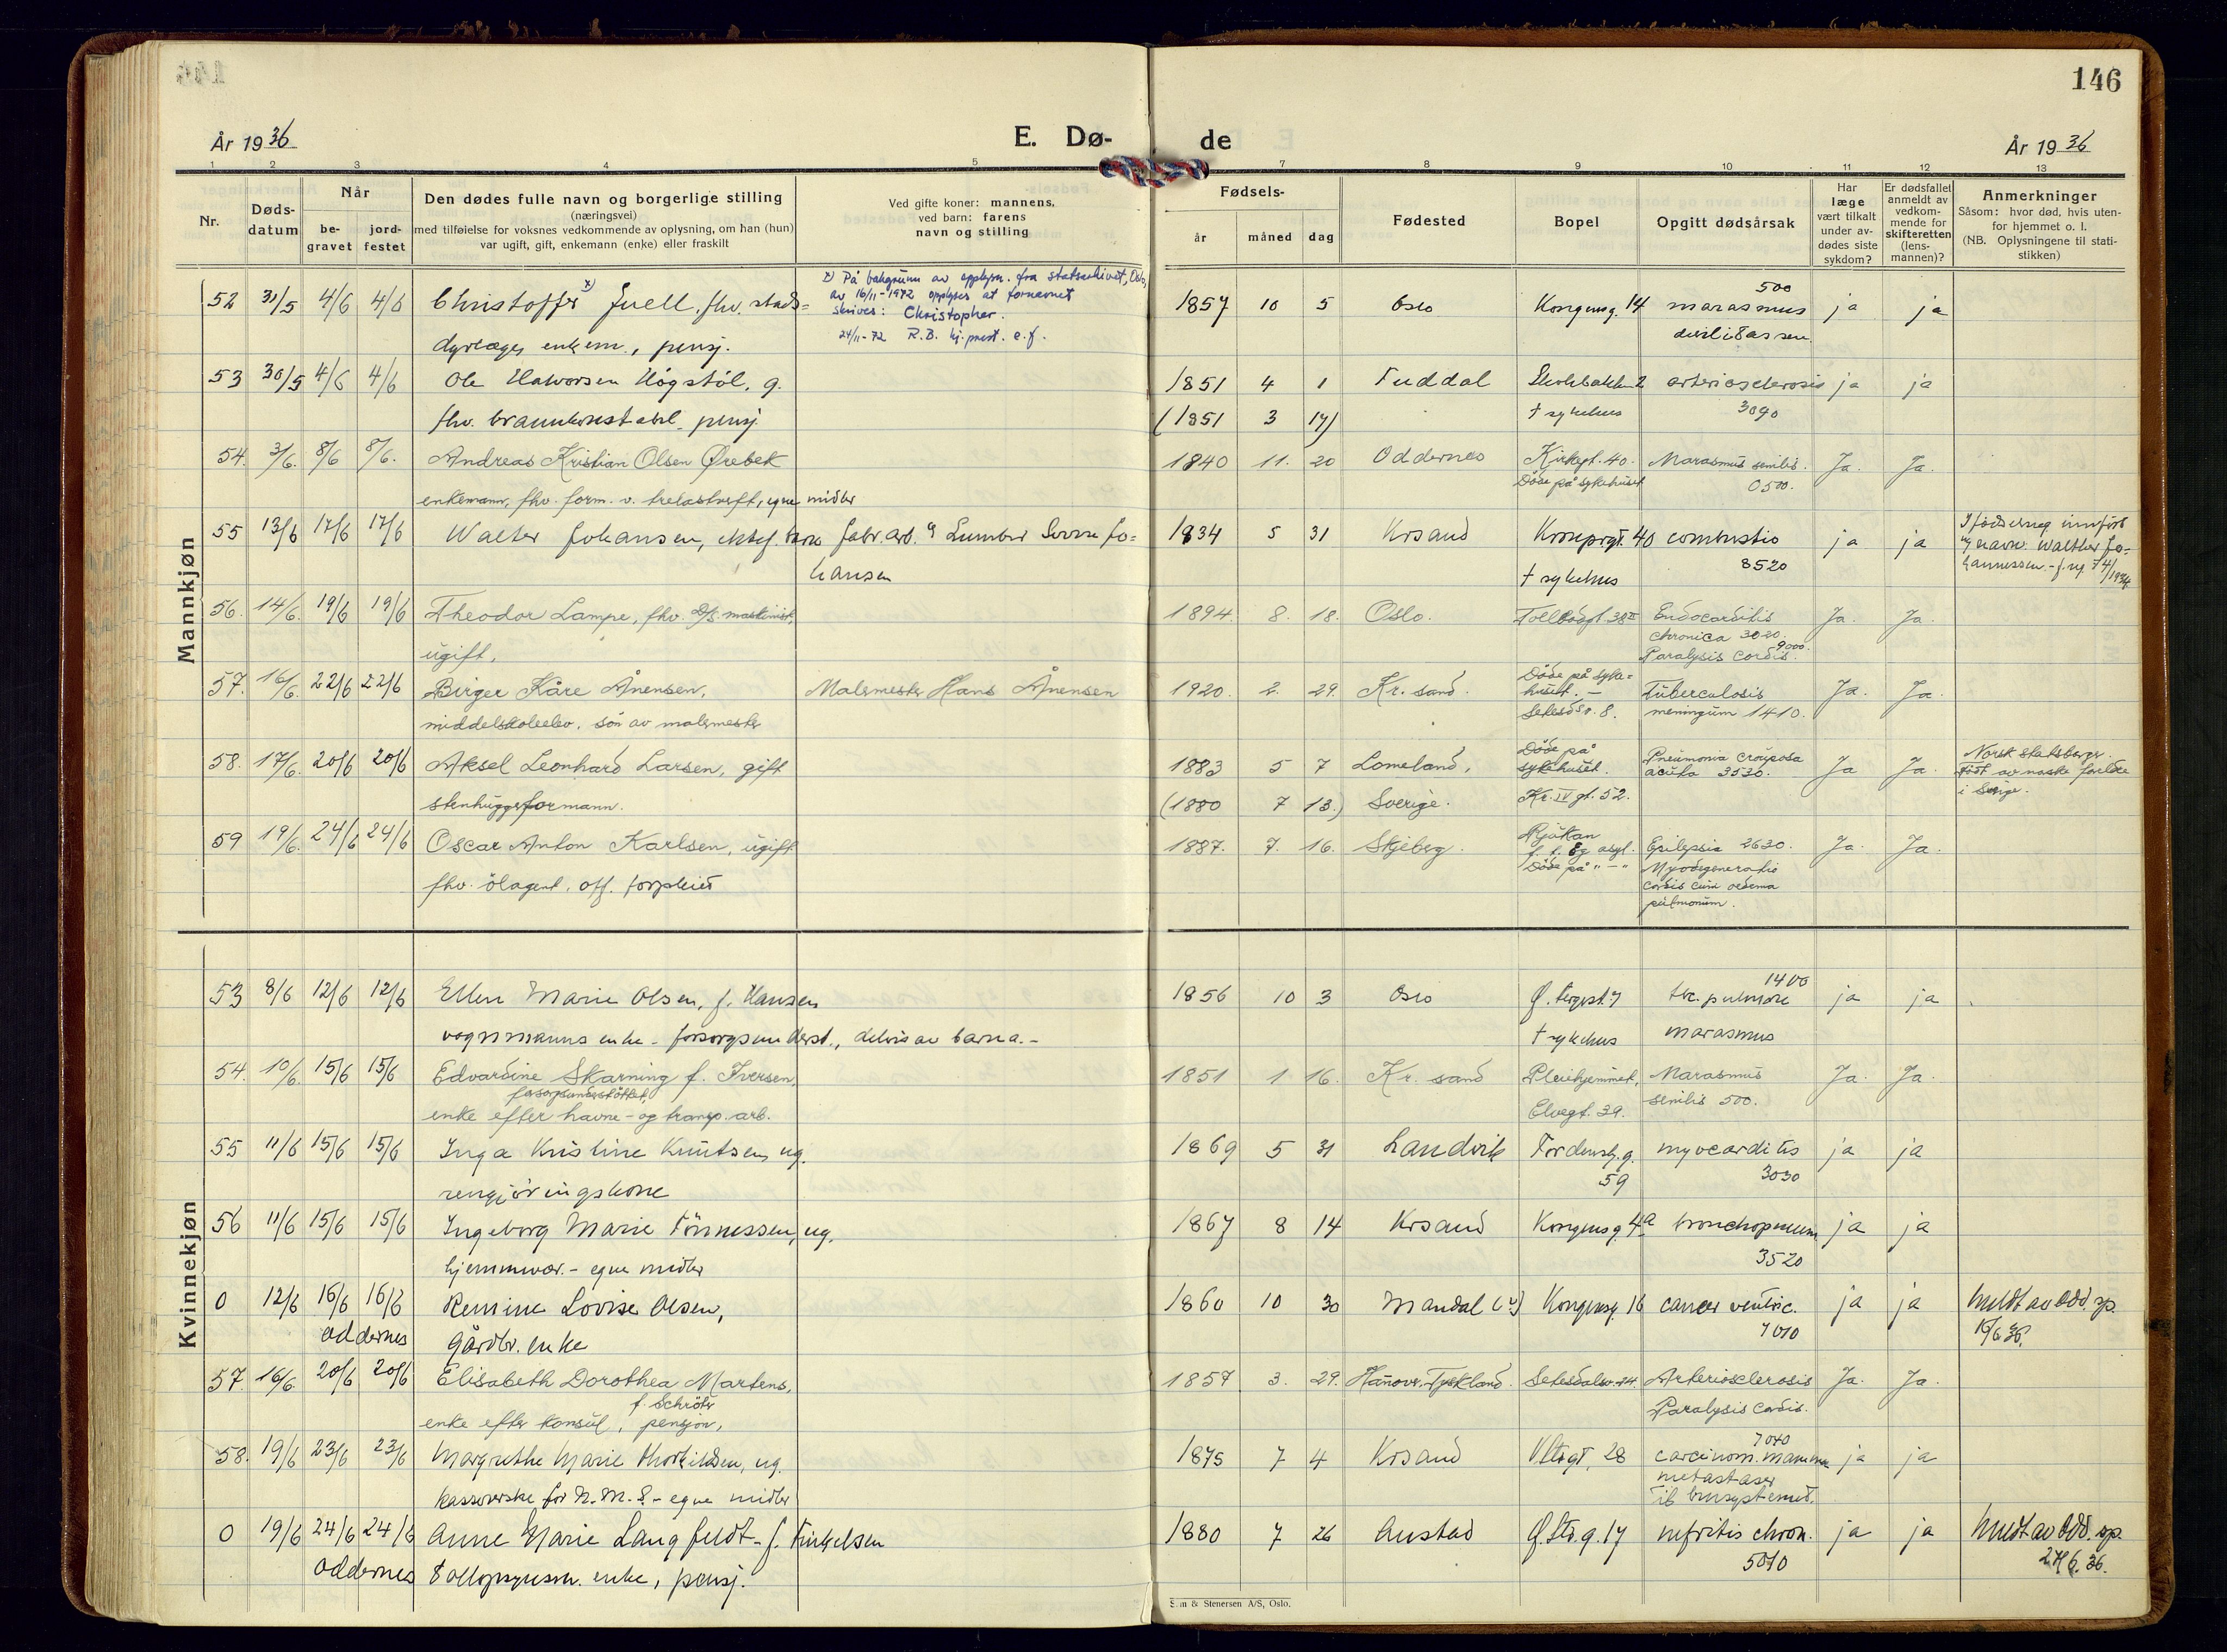 146
År 1936
E. Dø-
de
År 1936
1 2 3 4 5 7 8 9 10 11 12 13
Nr.
Døds-
datum
Når
be-
gravet
jord-
festet
Den dødes fulle navn og borgerlige stilling
(næringsvei)
med tilføielse for voksnes vedkommende av oplysning, om han (hun)
var ugift, gift, enkemann (enke) eller fraskilt
Ved gifte koner: mannens,
ved barn: farens
navn og stilling
Fødsels-
år måned dag
Fødested
Bopel
Opgitt dødsårsak
Har
læge
vært tilkalt
under av-
dødes siste
sykdom?
Er dødsfallet
anmeldt av
vedkom-
mende for
skifteretten
(lens-
mannen)?
Anmerkninger
Såsom: hvor død, hvis uten-
for hjemmet o. l.
(NB. Oplysningene til stati-
stikken)
Mannkjøn
52 31/5 4/6 4/6 Christoffer x) Juell, fhv. stads- 1857 10 5 Oslo Kongensg. 14 marasmus 500 ja ja
dyrlæge, enkem., pensj.
x) På bakgrunn av opplysn. fra statsarkivet, Oslo,
av 16/11-1972 opplyses at fornavnet
skrives: Christopher.
24/11-72 R.B. hj.prest. e.f.
53 30/5 4/6 4/6 Ole Halvorsen Høgstøl, g. 1851 4 1 Tuddal 2 arteriosclerosis ja ja
fhv. pensj. (1851 3 17) † sykehus 3090
54. 3/6. 8/6 8/6. Andreas Kristian Olsen Ørebek 1840 11. 20 Oddernes Kirkegt. 40. Marasmus senilis. Ja. Ja.
enkemann, fhv. form. v. trelastdrift, egne midler Døde på sykehuset 0500.
55 13/6 17/6 17/6 Walter Johansen, ektef. barn fabr.arb. Gunnar Sverre Jo- 1934 5 31 Krsand 40 combustio ja ja
hansen † sykehus 8520
navn Walther Jo-
hannessen.
56. 14/6. 19/6 19/6 Theodor Lampe, fhv. D/S. maskinist, 1894. 8. 18. Oslo. Tollbodgt. 38 Endocarditis Ja. Ja.
ugift, chronica 3020.
Paralysis cordis. 9000.
57. 16/6. 22/6 22/6 Birger Kåre Ånensen, Malermester Hans Ånensen 1920. 2. 29. Kr. sand. Døde på syke-
huset. — Tuberculosis Ja. Ja.
middelskoleelev. søn av malermester Setesdsv. 8. meningum 1410.
58. 17/6. 20/6 20/6 Aksel Leonhard Larsen, gift 1883 5 7 Lomeland, Døde på sykehuset. Pneumonia crouposa acuta 3530. Ja Ja. Norsk statsborger.
født av norske foreldre
i Sverige.
stenhuggerformann. (1880 7 13.) Sverige. Kr. IV gt. 52.
59 19/6. 24/6 24/6 Oscar Anton Karlsen, ugift 1887. 7. 16. Skjeberg. Rjukan Epilepsia 2630. Ja. Ja.
fhv. ølagent. off. forpleiet f. t. Eg asyl. Myodegeneratio
Døde på " — " cordis cum oedema
pulmonum.
Kvinnekjøn
53 8/6 12/6 12/6 Ellen Marie Olsen, f. Hansen 1856 10 3 Oslo tbc. pulmore 1400 ja ja
vognmanns enke - forsorgsunderst., delvis av barna. - † sykehus marasmus
54. 10/6. 15/6 15/6 Edvardine Skarning f. Iversen, 1851 1 16. Kr. sand Pleiehjemmet, Marasmus Ja. Ja.
forsorgsunderstøttet,
enke efter havne- og transp. arb. Elvegt. 39. senilis 500.
55 11/6 15/6 15/6 Inga Kristine Knutsen, ug. 1869 5 31 Landvik Tordenskj. g. myocarditis ja ja
rengjøringskone 59 3030
56 11/6 15/6 15/6 Ingeborg Marie Tønnessen, ug. 1867 8 14 Krsand Kongensg. 4a bronchopneum. ja ja
hjemmevær. - egne midler 3520
0 12/6 16/6 16/6 Remine Lovise Olsen, 1860 10 30 Mandal Kongensg. 16 cancer ventric. ja ja meldt av Odd. sp.
Oddernes gårdbr. enke 7010 16/6 36.
57. 16/6. 20/6 20/6 Elisabeth Dorothea Martens, 1857 3. 29. Hanover. Tyskland. Setesdalsv. 24. Arteriosclerosis Ja. Ja.
f. Schröter
enke efter konsul, pensjon, Paralysis cordis.
58. 19/6 23/6 23/6 Margrethe Marie Thorkildsen, ug. 1875 7 4 Krsand V. Strgt. 28 carcinom. mammæ 7040 ja ja
kassererske for N.M.S. - egne midler metastaser
til
0 19/6 24/6 24/6 Anne Marie Langfeldt - f. Tinkelsen 1880 7 26 Austad Ø. Str. g. 17 nefritis chron. ja ja meldt av Odd. sp.
Oddernes tollopsynsm. enke, pensj. 5010 27/6. 36.
S:m & Stenersen A/S, Oslo.